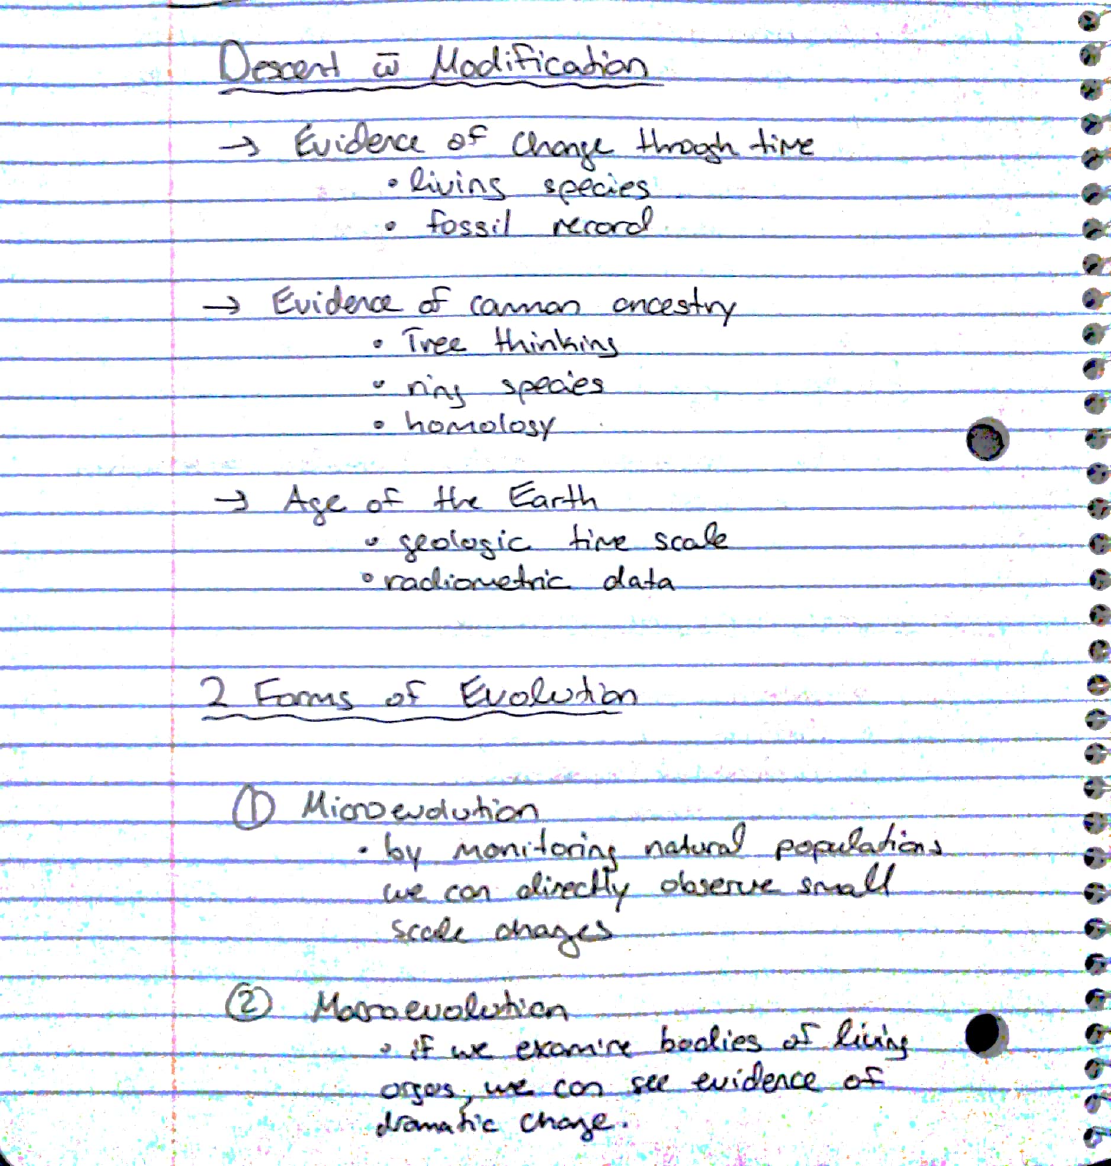 Descent w̄ Modification
→ Evidence of change through time
• living species
• fossil record
→ Evidence of common ancestry
• Tree thinking
• ring species
• homology
→ Age of the Earth
• geologic time scale
• radiometric data
2 Forms of Evolution
① Microevolution
• by monitoring natural populations
we can directly observe small
scale changes
② Macroevolution
• if we examine bodies of living
orgos, we can see evidence of
dramatic change.